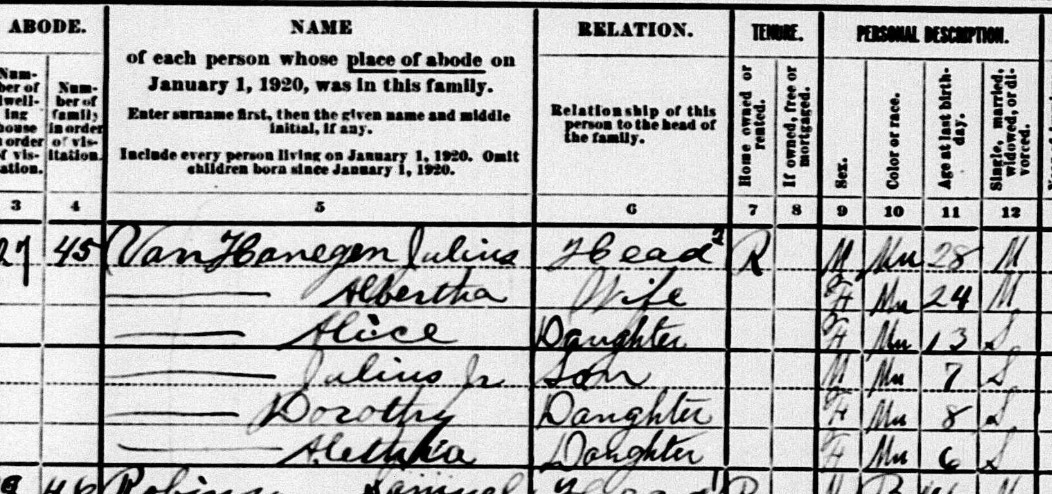 ABODE. NAME RELATION. TENURE. PERSONAL DESCRIPTION.
Num-
ber of
dwell-
ing
house
in order
of vis-
itation.
Num-
ber of
family
in order
of vis-
itation.
of each person whose place of abode on
January 1, 1920, was in this family.
Enter surname first, then the given name and middle
initial, if any.
Include every person living on January 1, 1920. Omit
children born since January 1, 1920.
Relationship of this
person to the head of
the family.
Home owned or
rented.
If owned, free or
mortgaged.
Sex.
Color or race.
Age at last birth-
day.
Single, married,
widowed, or di-
vorced.
3 4 5 6 7 8 9 10 11 12
27 45 Van Hanegen Julius Head R M Mu 28 M
Albertha Wife F Mu 24 M
Alice Daughter F Mu 13 S
Julius Jr Son M Mu 7 S
Dorothy Daughter F Mu 8 S
Alethia Daughter F Mu 6 S